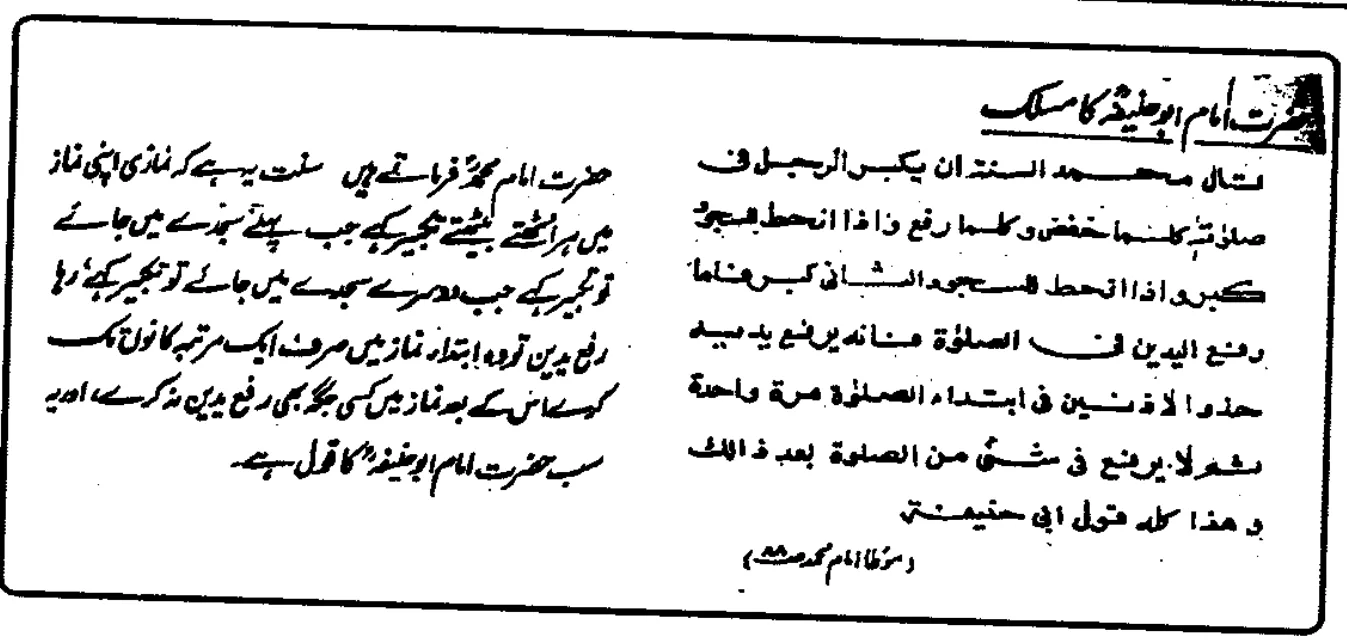 حضرت امام ابوحنیفہؒ کا مسلک
قال محمد السنة ان يكبر الرجل فی
صلوٰتہٖ کلما خفض وکلما رفع واذا انحط للسجود
کبر واذا انحط للسجود الثانی کبر فاما
رفع الیدین فی الصلوٰة فانه یرفع یدیه
حذو الاذنین فی ابتداء الصلوٰة مرة واحدة
ثم لا یرفع فی شئی من الصلوة بعد ذالك
وهذا کله قول ابی حنیفة
(موطا امام محمد صـ۸۸)
حضرت امام محمدؒ فرماتے ہیں سنت یہ ہے کہ نمازی اپنی نماز
میں ہر اٹھتے بیٹھتے تکبیر کہے جب پہلے سجدے میں جائے
تو تکبیر کہے جب دوسرے سجدے میں جائے تو تکبیر کہے، رہا
رفع یدین تو وہ ابتداء نماز میں صرف ایک مرتبہ کانوں تک
کرے اس کے بعد نماز میں کسی جگہ بھی رفع یدین نہ کرے، اور یہ
سب حضرت امام ابوحنیفہؒ کا قول ہے۔